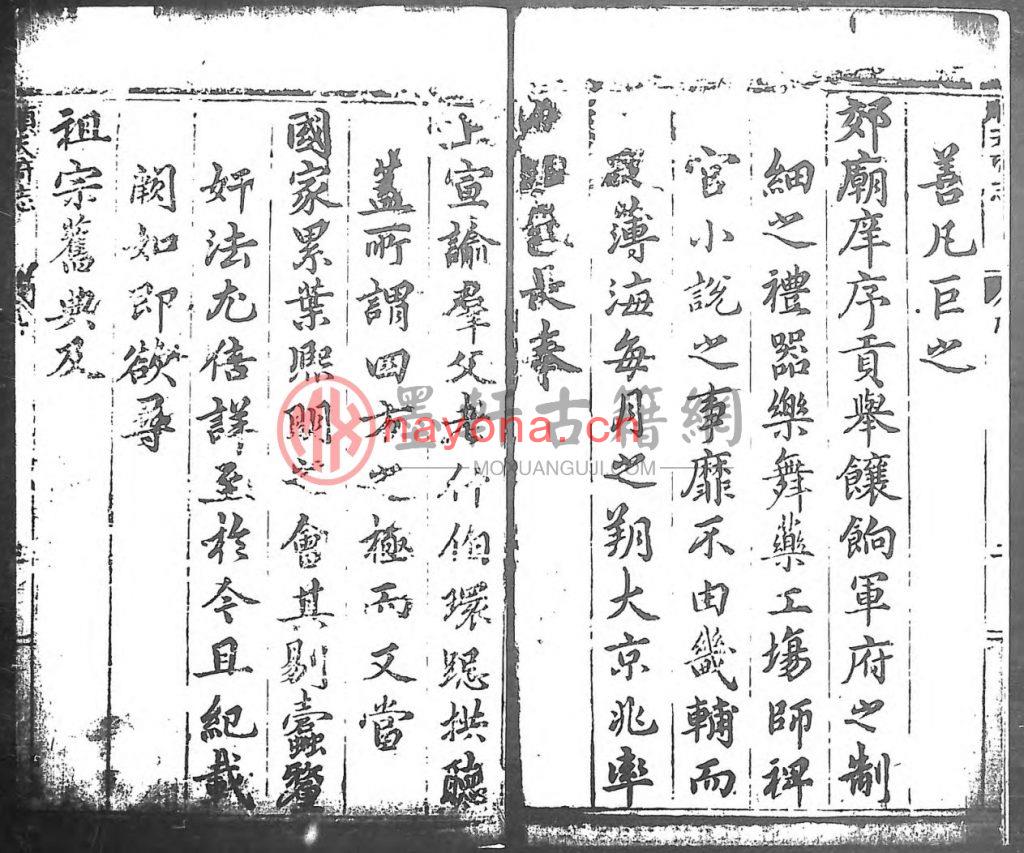 善凡巨之
郊廟庠序貢舉饟餉軍府之制
細之禮器樂舞藥工塲師稗
官小說之事靡不由畿輔而
薄海每月之朔大京兆率
長奉
上宣諭羣父老仟伯環跽拱聽
蓋所謂四方之極而又當
國家累葉熙明之會其剔蠹
奸法尤倍詳至於今且紀載
闕如即欲尋
祖宗舊典及
墨軒古籍網
nayona.cn
MOXUANGUJI.COM